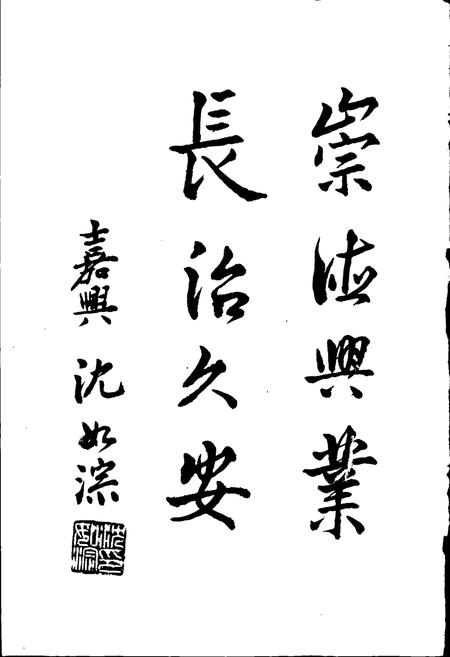 崇德興業
長治久安
嘉興 沈如淙